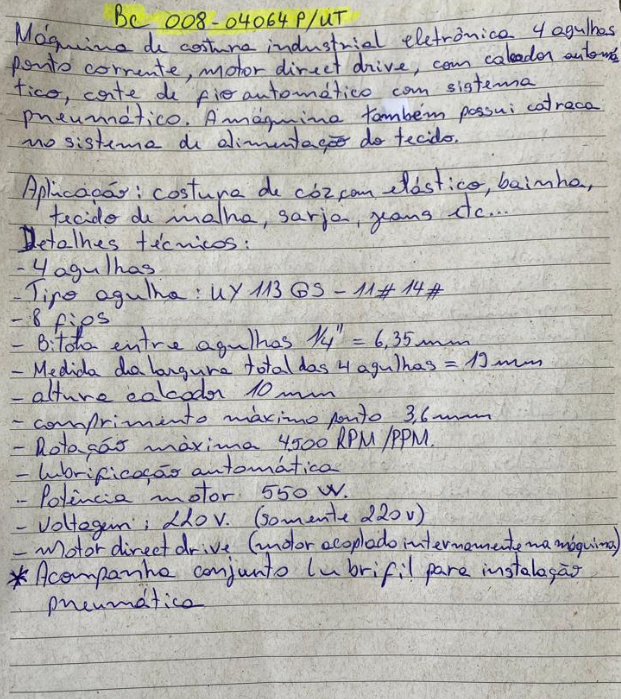 BC 008-04064P/UT
Máquina de costura industrial eletrônica 4 agulhas
ponto corrente, motor direct drive, com calcador automá
tico, corte de fio automático com sistema
pneumático. A máquina também possui catraca
no sistema de alimentação do tecido.
Aplicação: costura de cóz com elástico, bainha,
tecido de malha, sarja, jeans etc...
Detalhes técnicos:
- 4 agulhas
- Tipo agulha: UY 113 GS - 11# 14#
- 8 fios
- Bitola entre agulhas 1/4" = 6,35 mm
- Medida da largura total das 4 agulhas = 19 mm
- altura calcador 10 mm
- comprimento máximo ponto 3,6 mm
- Rotação máxima 4500 RPM/PPM.
- lubrificação automática
- Potência motor 550 W.
- Voltagem: 220 v. (somente 220 v)
- Motor direct drive (motor acoplado internamente na máquina)
* Acompanha conjunto lubrifil para instalação
pneumática